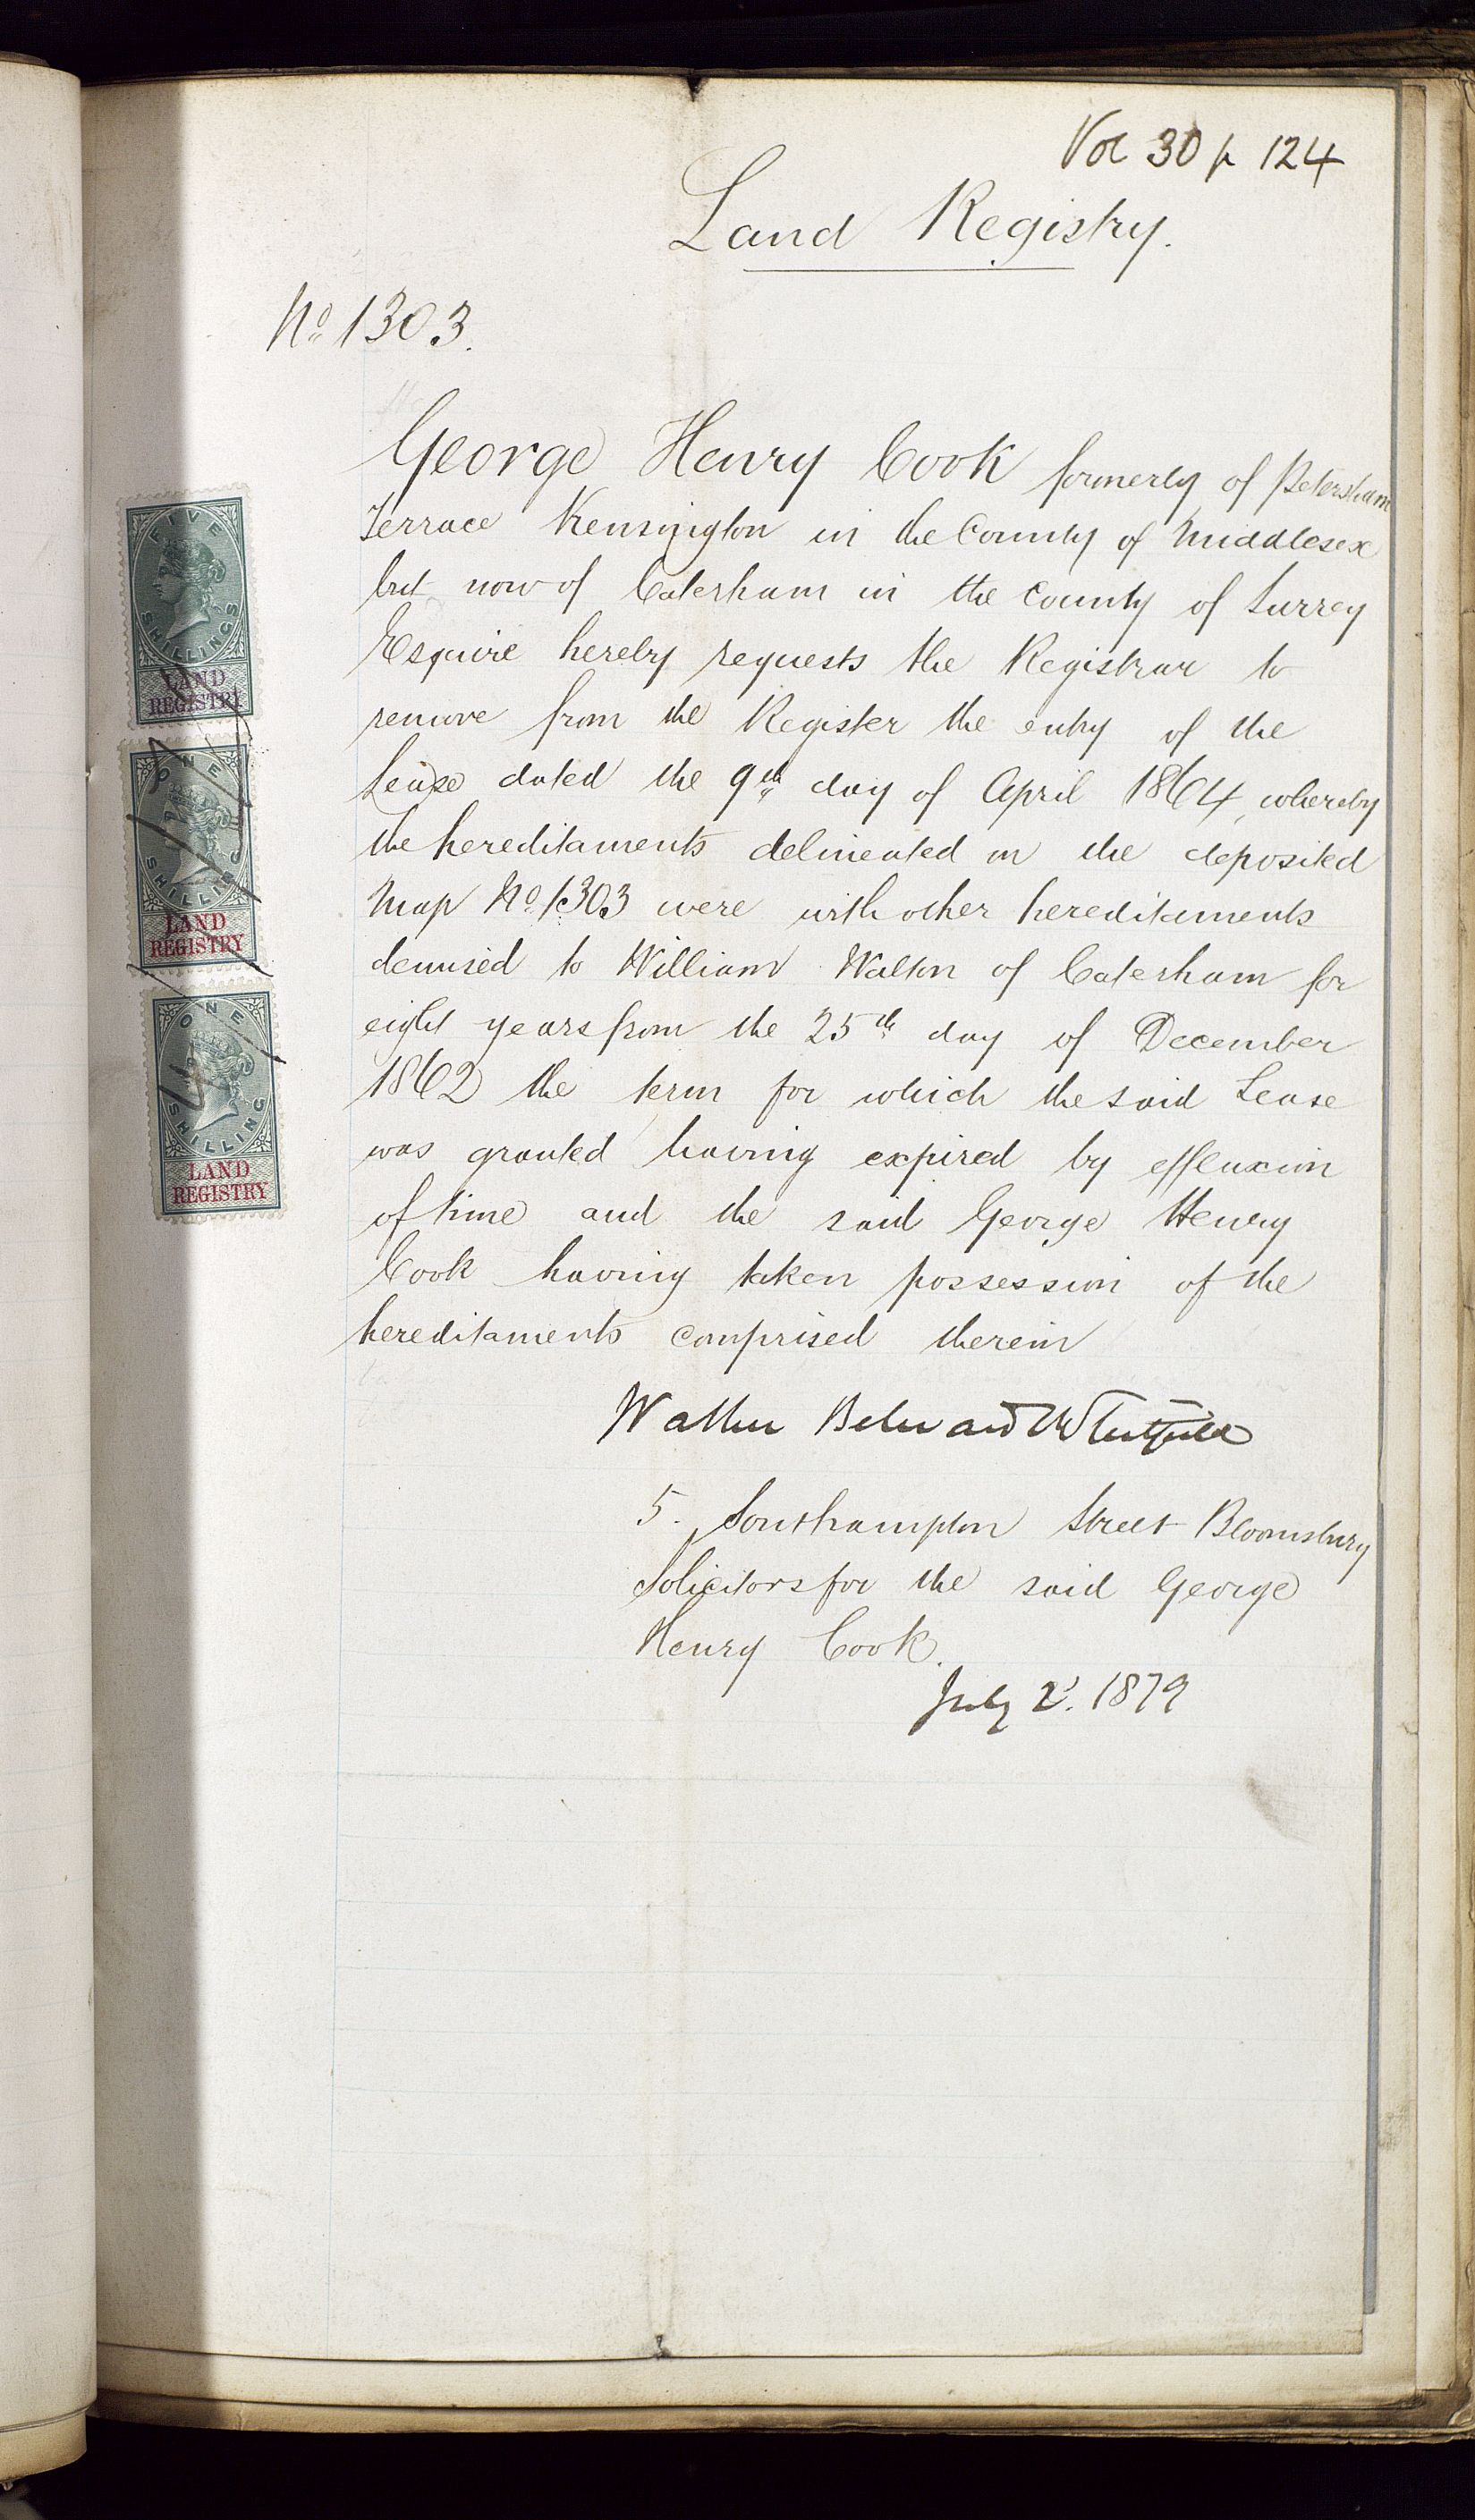 Vol 30 p 124
Land Registry.
No 1303.
George Henry Cook formerly of Petersham
Terrace Kensington in the County of Middlesex
but now of Caterham in the County of Surrey
Esquire hereby requests the Registrar to
remove from the Register the entry of the
Lease dated the 9th day of April 1864, whereby
the hereditaments delineated on the deposited
Map No. 1303 were with other hereditaments
demised to William Walton of Caterham for
eight years from the 25th day of December
1862 the term for which the said Lease
was granted having expired by effluxion
of time and the said George Henry
Cook having taken possession of the
hereditaments comprised therein
and
5. Southampton Street Bloomsbury
Solicitors for the said George
Henry Cook.
July 2. 1879
FIVE
SHILLINGS
LAND
REGISTRY
ONE
SHILLING
LAND
REGISTRY
ONE
SHILLING
LAND
REGISTRY